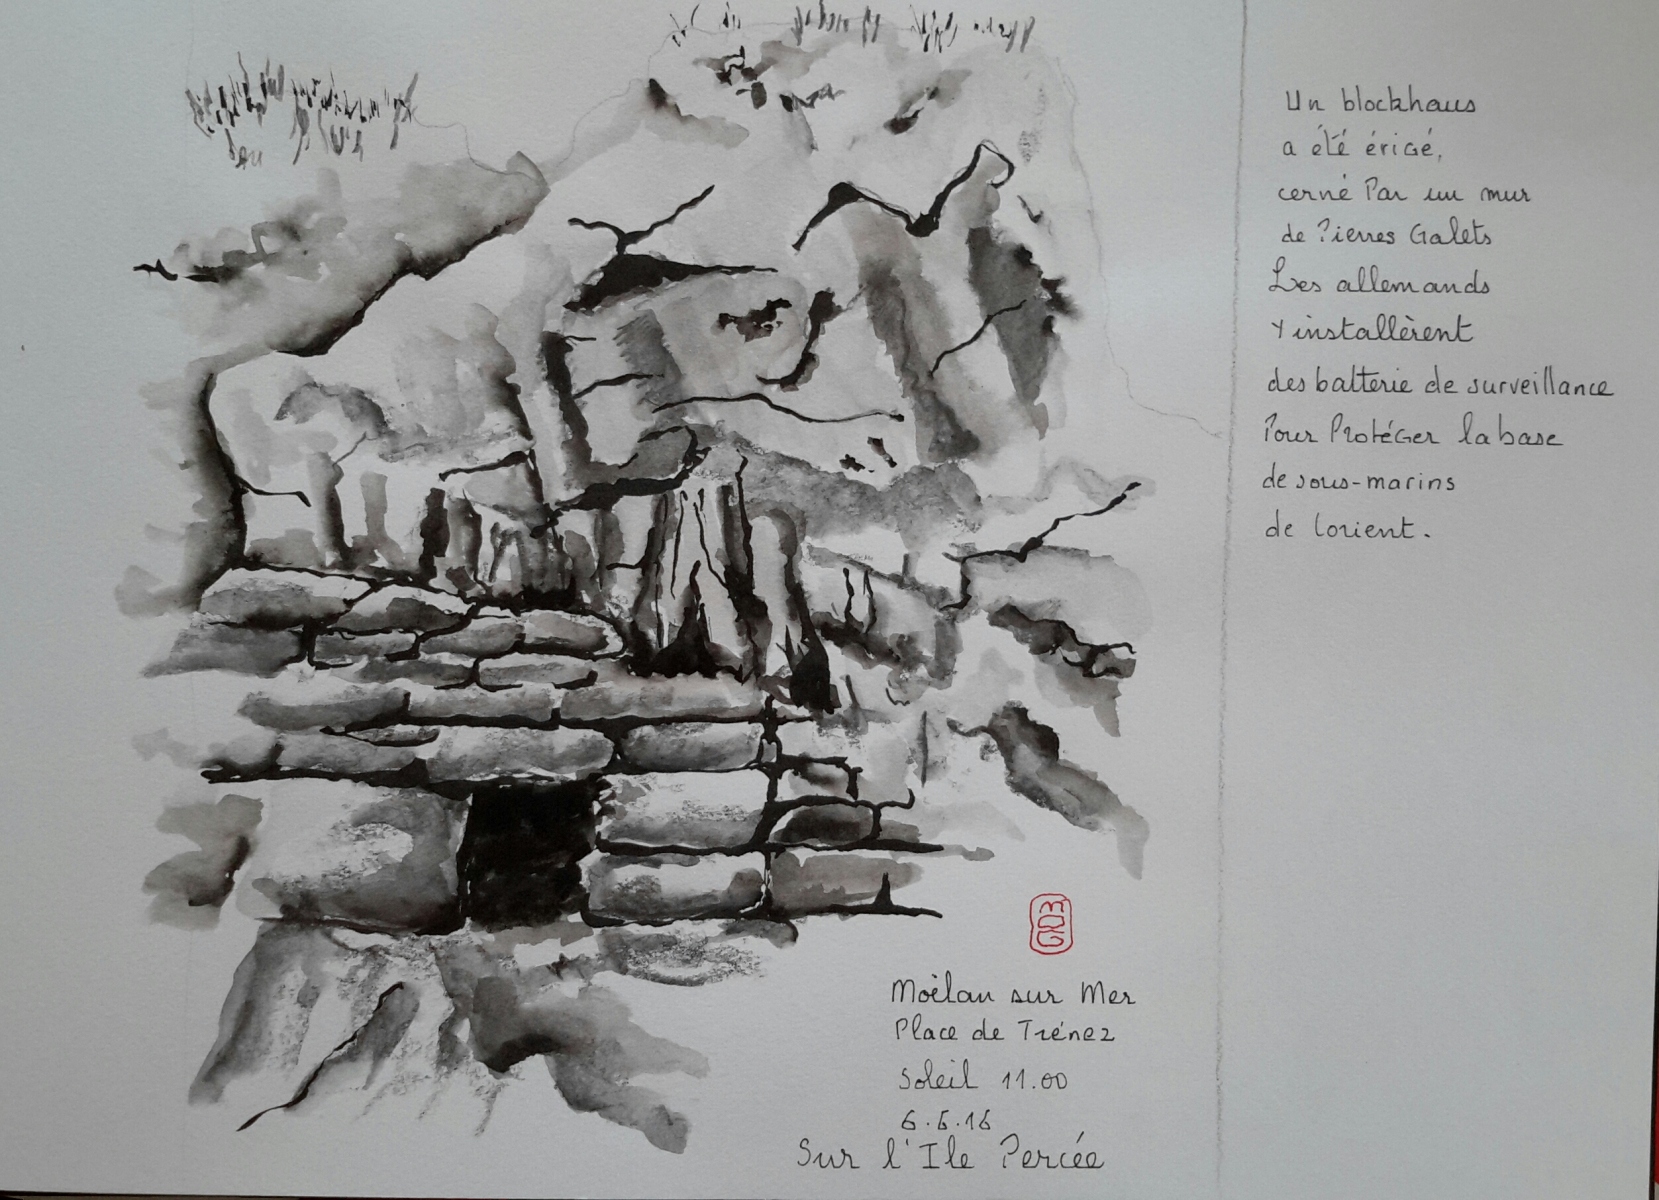 Un blockhaus
a été érigé,
cerné Par un mur
de Pierres Galets
Les allemands
y installèrent
des batterie de surveillance
Pour Protéger la base
de sous-marins
de lorient.
Moëlan sur Mer
Place de Trénez
Soleil 11.00
6.6.16
Sur l'Ile Percée